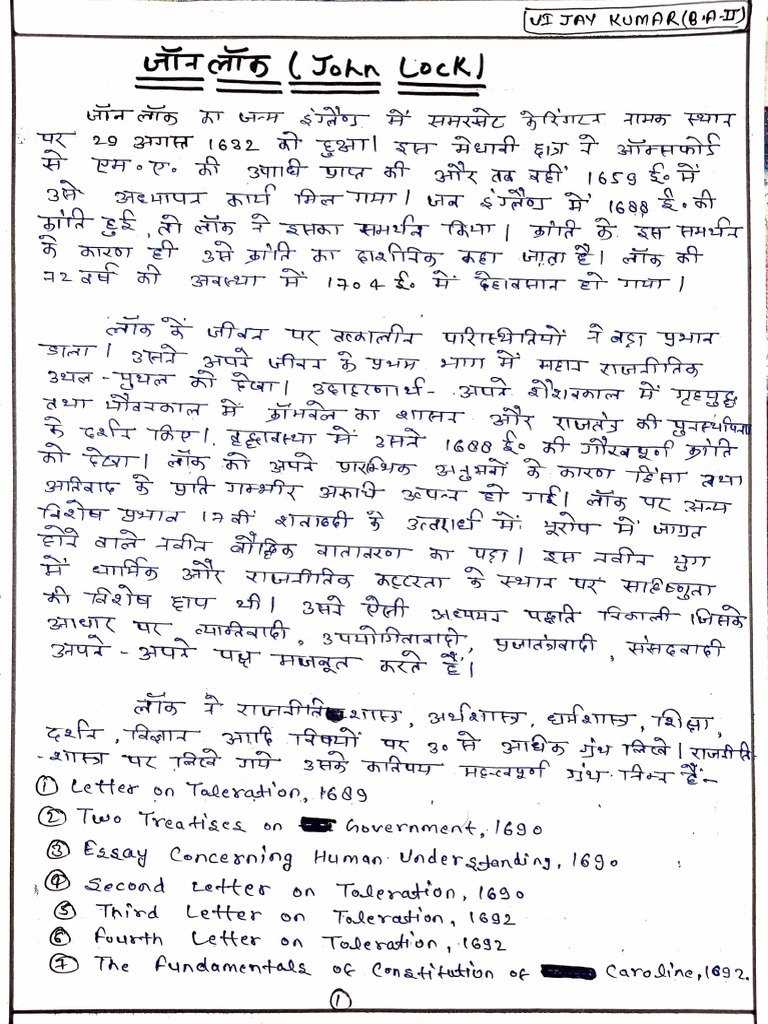 VIJAY KUMAR (B.A-II)
जॉन लॉक ( John Lock )
जॉन लॉक का जन्म इंग्लैण्ड में समरसेट केरिंगटन नामक स्थान
पर 29 अगस्त 1632 को हुआ। इस मेधावी छात्र ने ऑक्सफोर्ड
से एम॰ए॰ की उपाधी प्राप्त की और तब वहीं 1659 ई॰ में
उसे अध्यापन कार्य मिल गया। जब इंग्लैण्ड में 1688 ई॰ की
क्रांति हुई, तो लॉक ने इसका समर्थन किया। क्रांति के इस समर्थन
के कारण ही उसे क्रांति का दार्शनिक कहा जाता है। लॉक की
72 वर्ष की अवस्था में 1704 ई॰ में देहावसान हो गया।
लॉक के जीवन पर तत्कालीन परिस्थितियों ने बड़ा प्रभाव
डाला। उसने अपने जीवन के प्रथम भाग में महान राजनीतिक
उथल-पुथल को देखा। उदाहरणार्थ- अपने शैशवकाल में गृहयुद्ध
तथा यौवनकाल में क्रॉमवेल का शासन और राजतंत्र की पुनर्स्थापना
के दर्शन किए। वृद्धावस्था में उसने 1688 ई॰ की गौरवपूर्ण क्रांति
को देखा। लॉक को अपने प्रारम्भिक अनुभवों के कारण हिंसा तथा
अतिवाद के प्रति गम्भीर अरूची उत्पन्न हो गई। लॉक पर अन्य
विशेष प्रभाव 17वीं शताब्दी के उत्तरार्ध में यूरोप में जाग्रत
होने वाले नवीन बौद्धिक वातावरण का पड़ा। इस नवीन युग
में धार्मिक और राजनीतिक कट्टरता के स्थान पर सहिष्णुता
की विशेष छाप थी। उसने ऐसी अध्ययन पद्धति निकाली जिसके
आधार पर व्यक्तिवादी, उपयोगितावादी, प्रजातंत्रवादी, संसदवादी
अपने-अपने पक्ष मजबूत करते हैं।
लॉक ने राजनीति शास्त्र, अर्थशास्त्र, धर्मशास्त्र, शिक्षा,
दर्शन, विज्ञान आदि विषयों पर 30 से अधिक ग्रंथ लिखे। राजनीति
-शास्त्र पर लिखे गये उसके कतिपय महत्वपूर्ण ग्रंथ निम्न हैं:-
① Letter on Taleration, 1689
② Two Treatises on Government, 1690
③ Essay Concerning Human Understanding, 1690
④ Second Letter on Taleration, 1690
⑤ Third Letter on Taleration, 1692
⑥ Fourth Letter on Taleration, 1692
⑦ The Fundamentals of Constitution of Caroline, 1692.
①